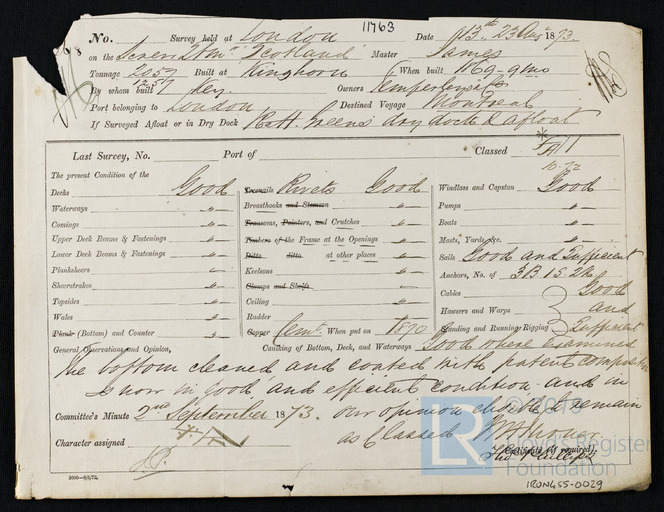 11763
No. Survey held at London Date 13th, 23 Aug 1873.
on the Screw Str Scotland Master James
Tonnage 2057 1257 Built at Kinghorn When built 1869. 9mo
By whom built Key. Owners Temperleys
Port belonging to London Destined Voyage Montreal
If Surveyed Afloat or in Dry Dock R & H. Greens dry dock & afloat
Last Survey, No. Port of Classed
10.72
The present Condition of the
Decks Good
Waterways "
Comings "
Upper Deck Beams & Fastenings "
Lower Deck Beams & Fastenings "
Planksheers
Sheerstrakes "
Topsides "
Wales "
Plank (Bottom) and Counter "
Treenails Rivets Good
Breasthooks and Stemson "
Transoms, Pointers, and Crutches "
Timbers of the Frame at the Openings "
Ditto ditto at other places "
Keelsons "
Clamps and Shelfs
Ceiling "
Rudder "
Copper Cemt. When put on 1870
Windlass and Capstan Good
Pumps "
Boats "
Masts, Yards &c. "
Sails Good and Sufficient
Anchors, No. of 3B 1S. 2K
Cables Good
Hawsers and Warps and
Standing and Running Rigging Sufficient
General Observations and Opinion, Caulking of Bottom, Deck, and Waterways Good where examined
The bottom cleaned and coated with patent composition
Is now in good and efficient condition and in
Committee's Minute 2nd September 1873. our opinion eligible to remain
as Classed
Character assigned
Certificate (if required)
Thos Phillips
2000—8/2/72.
LR © 2019
Lloyd's Register
Foundation
IRON455-0029